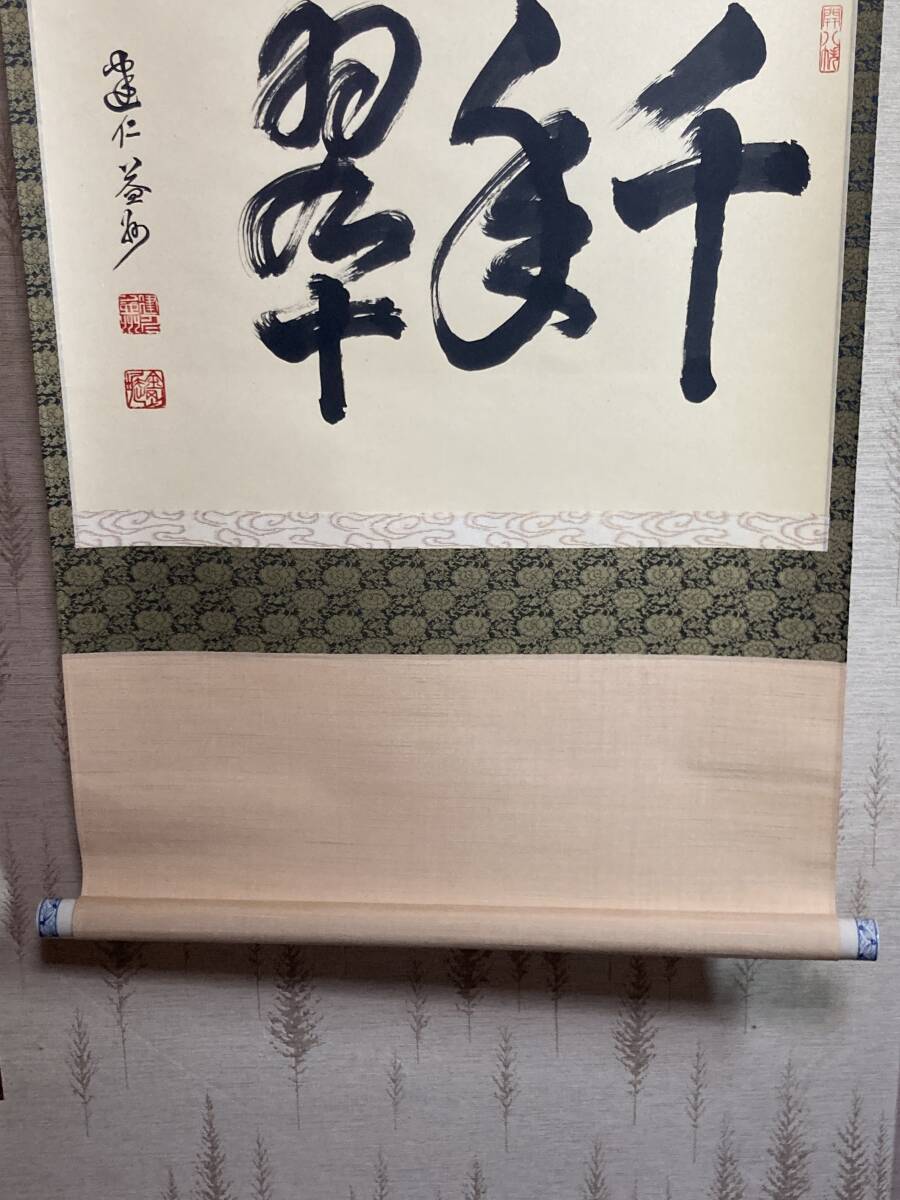 千年翠
建仁益州